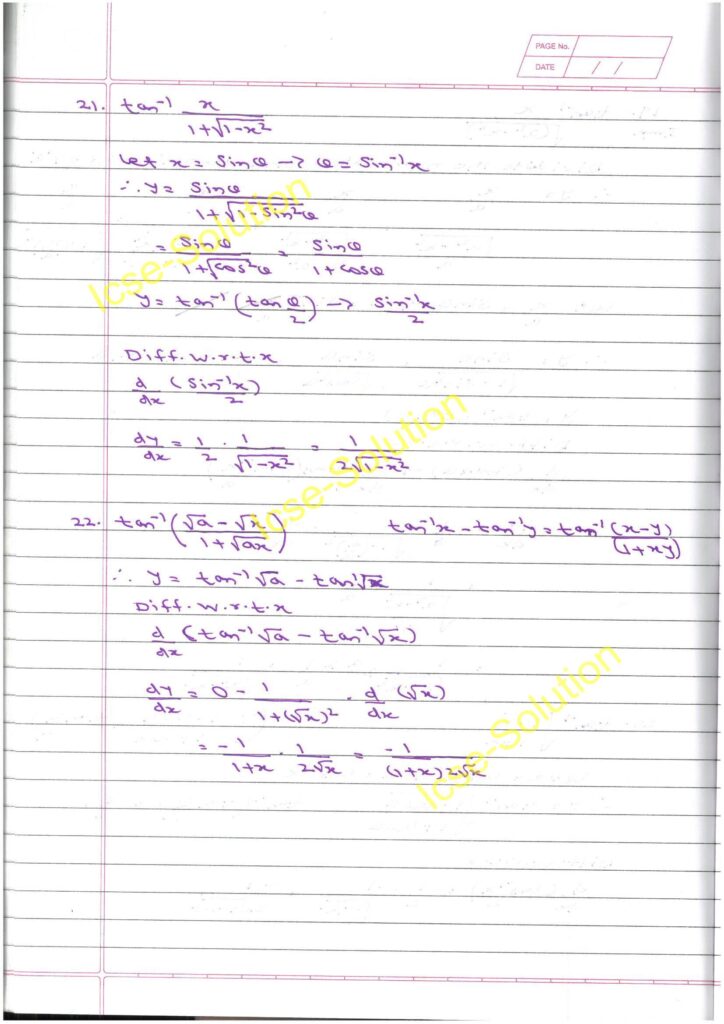 PAGE No.
DATE / /
21. tan⁻¹ x/(1+√(1-x²))
Let x = Sinθ → θ = Sin⁻¹x
∴ y = Sinθ/(1+√(1-Sin²θ))
= Sinθ/(1+√(cos²θ)) = Sinθ/(1+cosθ)
y = tan⁻¹(tan θ/2) → Sin⁻¹x/2
Diff. w.r.t. x
d/dx (Sin⁻¹x/2)
dy/dx = 1/2 · 1/√(1-x²) = 1/(2√(1-x²))
22. tan⁻¹((√a - √x)/(1+√ax)) tan⁻¹x - tan⁻¹y = tan⁻¹ (x-y)/(1+xy)
∴ y = tan⁻¹√a - tan⁻¹√x
Diff. w.r.t. x
d/dx (tan⁻¹√a - tan⁻¹√x)
dy/dx = 0 - 1/(1+(√x)²) · d/dx (√x)
= -1/(1+x) · 1/(2√x) = -1/((1+x)2√x)
Icse-Solution
Icse-Solution
Icse-Solution